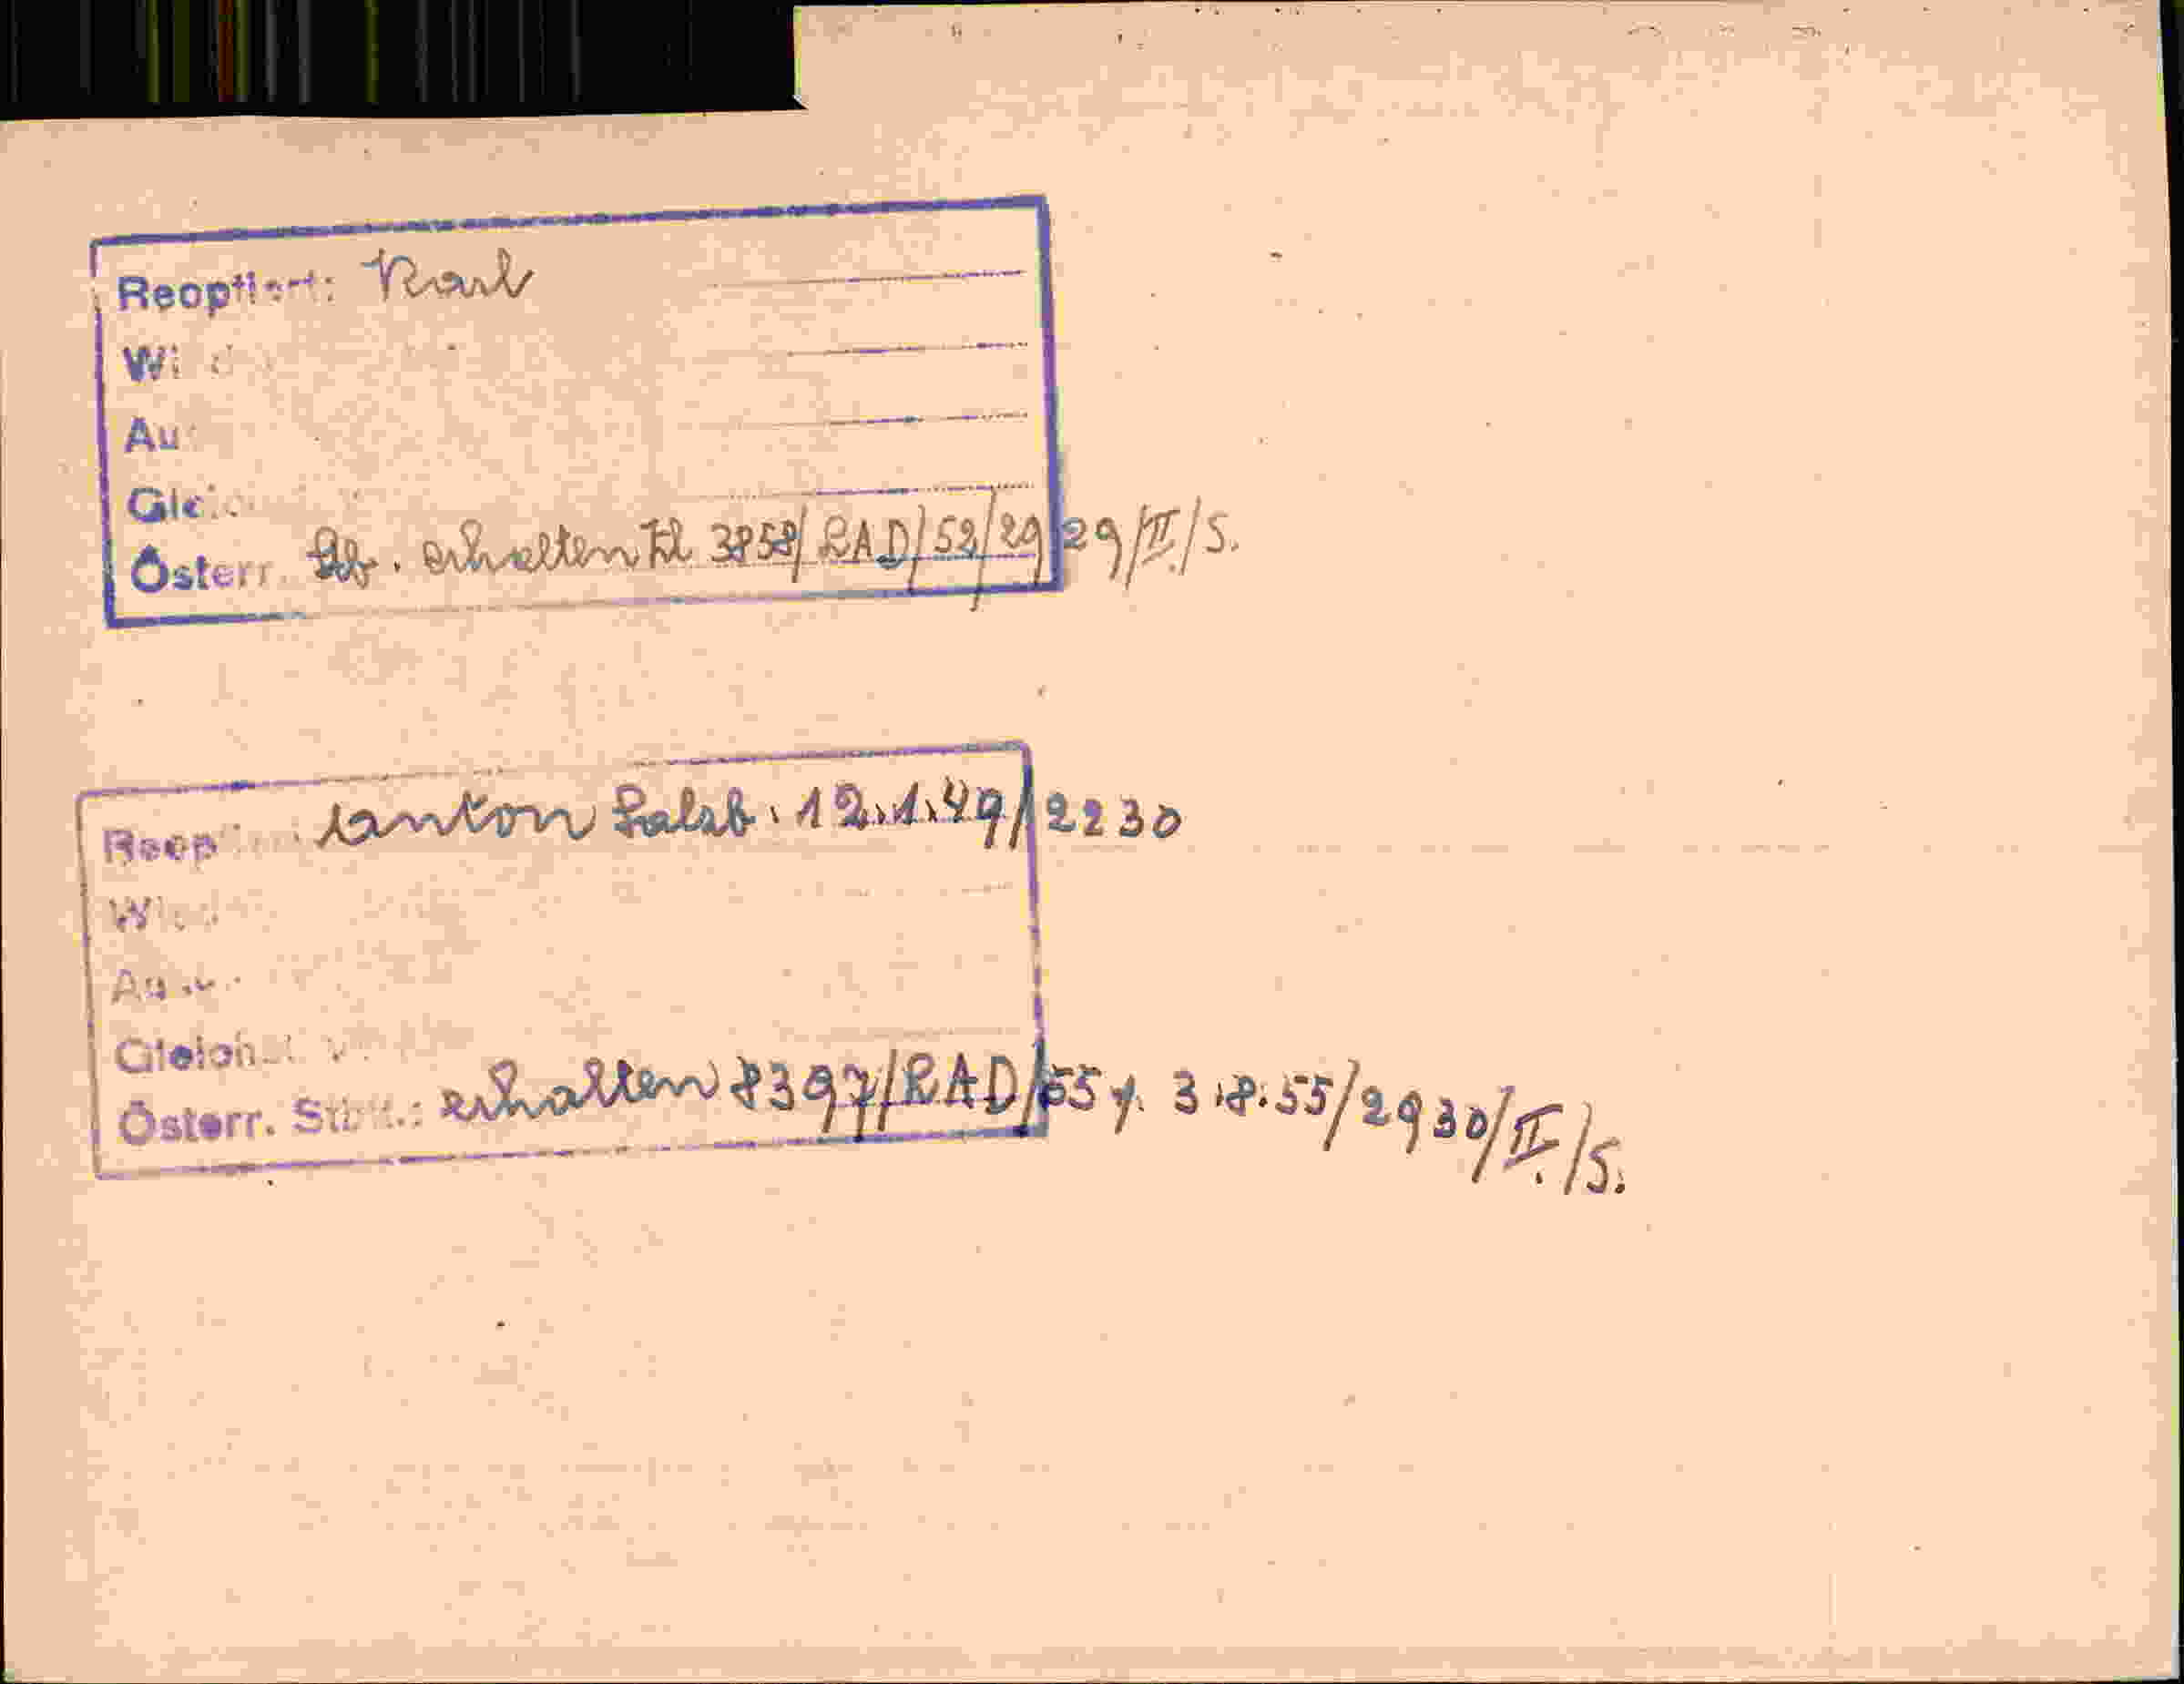 Reoptiert: Karl
Wi
Au
Glei
Österr. Stb. erhalten Zl 3858/RAD/52/29 29/II/S.
Reopt Anton Salzb. 12.1.49/2230
Wied
Au
Gleich
Österr. Stb.: erhalten 8397/RAD/55 v. 3.8.55/2930/II./S.